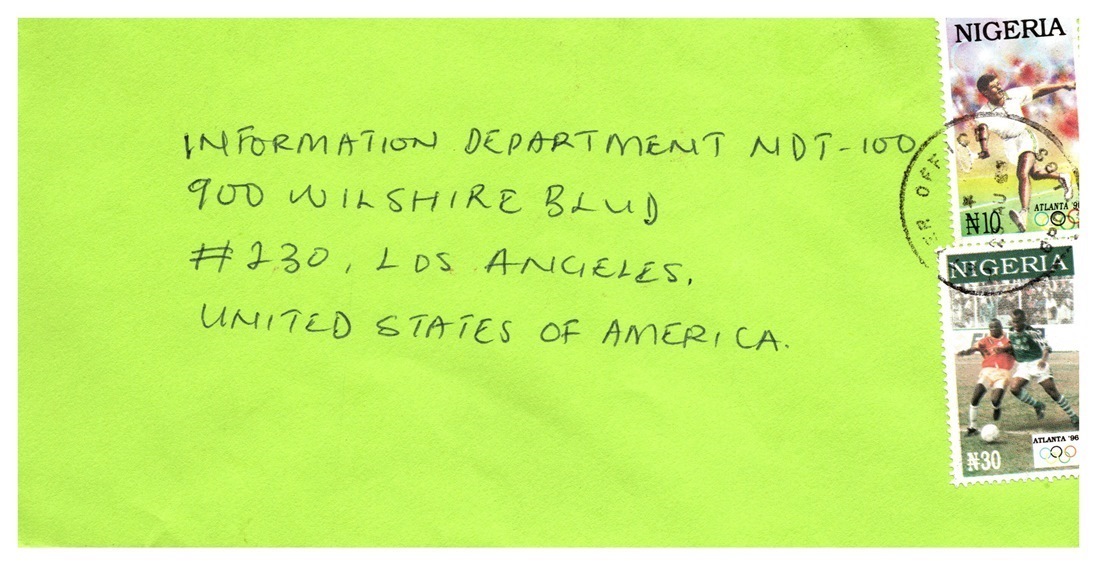 INFORMATION DEPARTMENT NDT-100
900 WILSHIRE BLVD
#230, LOS ANGELES,
UNITED STATES OF AMERICA.
NIGERIA
ATLANTA '96
₦10
OFFICE
AU
NIGERIA
ATLANTA '96
₦30